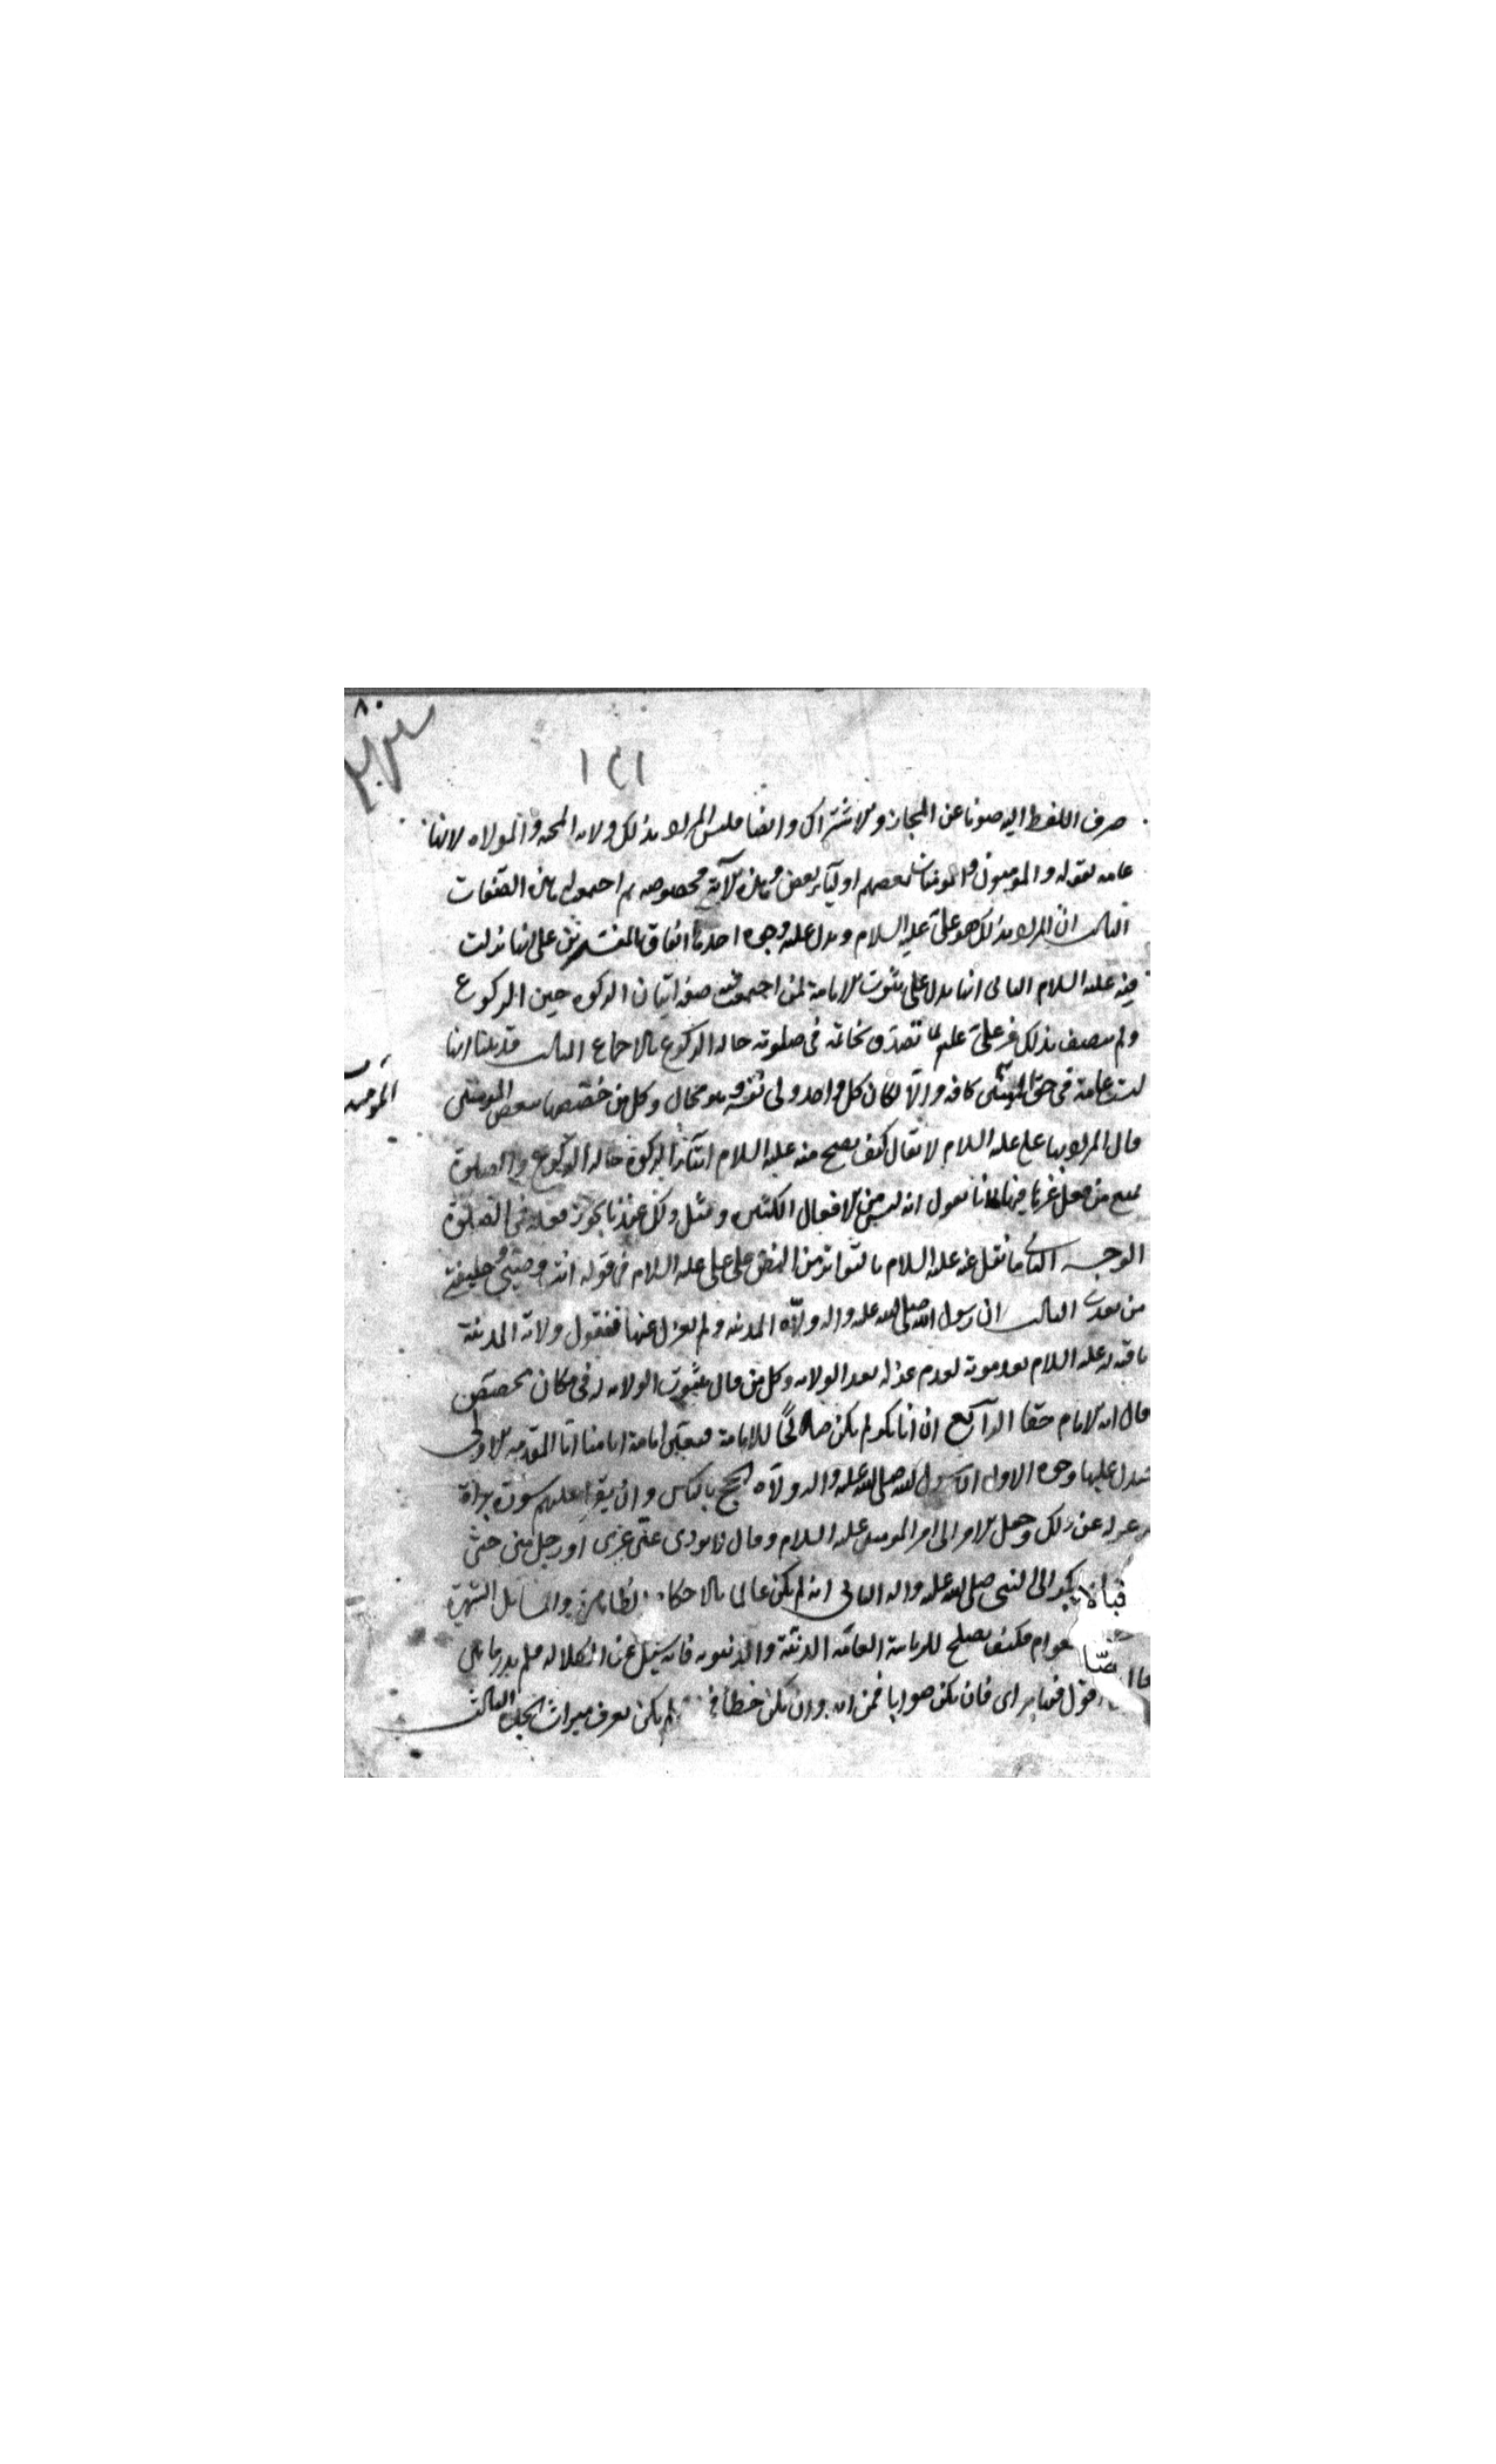 ٨٠
١٢١
صرف اللفظ اليه صونا عن المجاز والاشتراك وايضا فليس المراد بذلك ولاية المحبة والموالاة لانها
عامة لقوله والمؤمنون والمؤمنات بعضهم اولياء بعض وهذه الآية مخصوصة بمن اجتمعت له هذه الصفات
الثالث ان المراد بذلك هو علي عليه السلام ويدل عليه وجوه احدها اتفاق المفسرين على انها نزلت
فيه عليه السلام الثاني انها تدل على ثبوت الامامة لمن اجتمعت فيه صفة ايتاء الزكوة حين الركوع
ولم يتصف بذلك غير علي عليه لما تصدق بخاتمه في صلوته حالة الركوع بالاجماع الثالث قد بينا انها
ليست عامة في حق المؤمنين كافة والا لكان كل واحد ولي نفسه وهو محال وكل من خصصها ببعض المؤمنين
قال المراد بها علي عليه السلام لا يقال كيف يصح منه عليه السلام ايتاء الزكوة حالة الركوع والصلوة
تمنع من فعل غيرها فيها لانا نقول انه ليس من الافعال الكثيرة ومثل ذلك عندنا يجوز فعله في الصلوة
الوجه الثاني ما نقل عنه عليه السلام بالتواتر من النص على علي عليه السلام في قوله انت وصيي وخليفتي
من بعدي الثالث ان رسول الله صلى الله عليه واله ولاه المدينة ولم يعزل عنها فنقول ولاية المدينة
باقية له عليه السلام بعد موته لعدم عزله بعد الولاية وكل من قال بثبوت الولاية له في مكان مخصص
قال انه الامام حقا الرابع ان ابا بكر لم يكن صالحا للامامة فتعين امامة امامنا اما المقدمة الاولى
فيدل عليها وجوه الاول ان رسول الله صلى الله عليه واله ولاه الحج بالناس وان يقرا عليهم سورة براءة
ثم عزله عن ذلك وجعل الامر الى امير المؤمنين عليه السلام وقال لا يودي عني غيري او رجل مني حتى
يرجع ابو بكر الى النبي صلى الله عليه واله الثاني انه لم يكن عالما بالاحكام الظاهرة والمسائل الشهيرة
العوام فكيف يصلح للرياسة العامة الدينية والدنيوية فانه سئل عن الكلالة فلم يدر ما هي
اقول فيها براي فان يكن صوابا فمن الله وان يكن خطأ لم يكن يعرف ميراث الجدة الثالث